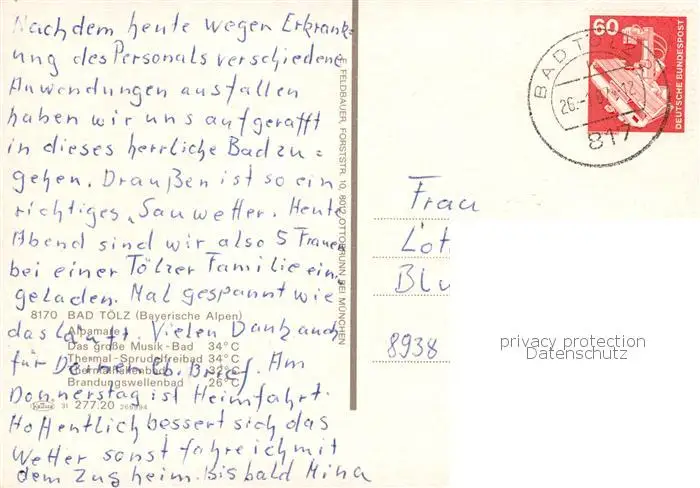 Nachdem heute wegen Erkrank=
ung des Personals verschiedene
Anwendungen ausfallen
haben wir uns aufgerafft
in dieses herrliche Bad zu=
gehen. Draußen ist so ein
richtiges „Sauwetter. Heute
Abend sind wir also 5 Frauen
bei einer Tölzer Familie ein
geladen. Mal gespannt wie
das läuft. Vielen Dank auch
für Deinen lb. Brief. Am
Donnerstag ist Heimfahrt.
Hoffentlich bessert sich das
Wetter sonst fahre ich mit
dem Zug heim. Bis bald Mina
8170 BAD TÖLZ (Bayerische Alpen)
Alpamare
Das große Musik-Bad 34°C
Thermal-Sprudelfreibad 34°C
Thermalhallenbad 32°C
Brandungswellenbad 26°C
31 277.20
E. FELDBAUER, FORSTSTR. 10, 8012 OTTOBRUNN BEI MÜNCHEN
60
DEUTSCHE BUNDESPOST
BAD TÖLZ
817
Frau
Lot
Blu
8938
privacy protection
Datenschutz